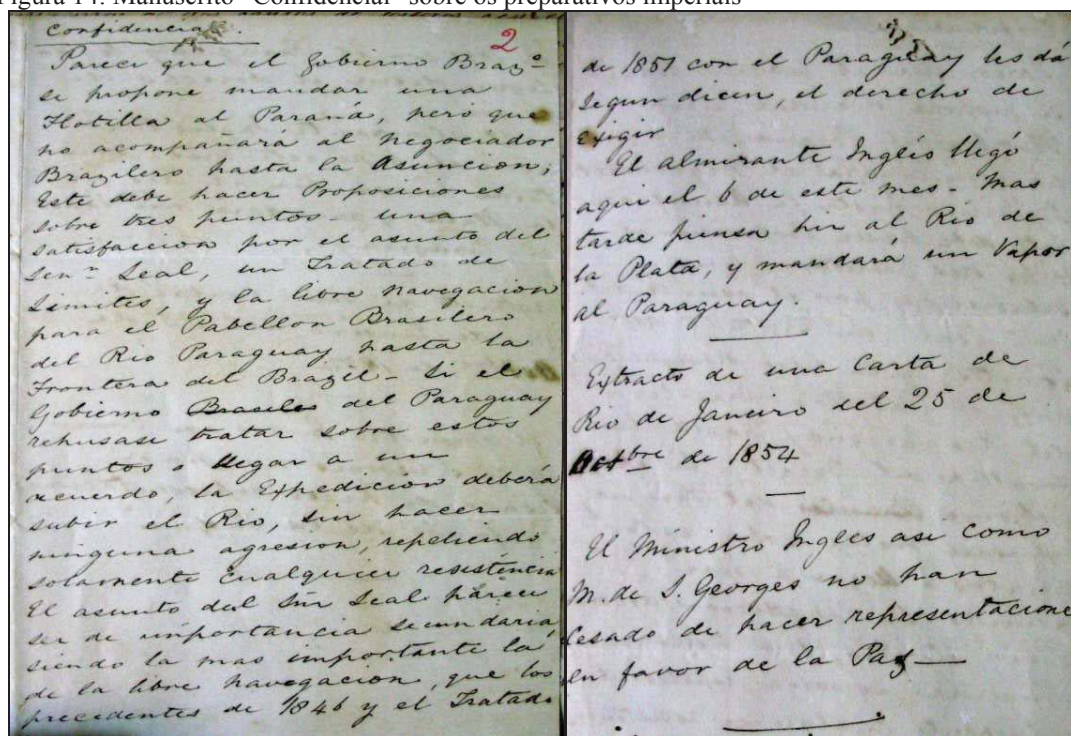 Figura 14: Manuscrito "Confidencial" sobre os preparativos imperiais
Confidencial.
2
Parece que el Gobierno Brazº
se propone mandar una
Flotilla al Paraná, pero que
no acompañará al negociador
Brazilero hasta la Asuncion;
Este debe hacer Proposiciones
sobre tres puntos - una
satisfaccion por el asunto del
Senr Leal, un Tratado de
Limites, y la libre navegacion
para el Pabellon Brasilero
del Rio Paraguay hasta la
Frontera del Brazil - Si el
Gobierno Brasile del Paraguay
rehusase tratar sobre estos
puntos o llegar a un
acuerdo, la Expedicion deberá
subir el Rio, sin hacer
ninguna agresion, repeliendo
solamente cualquier resistencia
El asunto del Sñr Leal párece
ser de importancia secundaria
siendo la mas importante la
de la libre navegacion, que los
precedentes de 1846 y el Tratado
de 1851 con el Paraguay les dá
segun dicen, el derecho de
exigir
El almirante Inglés llegó
aqui el 6 de este mes - Mas
tarde piensa hir al Rio de
la Plata, y mandará un Vapor
al Paraguay.
Extracto de una Carta de
Rio de Janeiro del 25 de
Octbre de 1854
El Ministro Ingles asi como
M. de S. Georges no han
Cesado de hacer representacione
en favor de la Paz